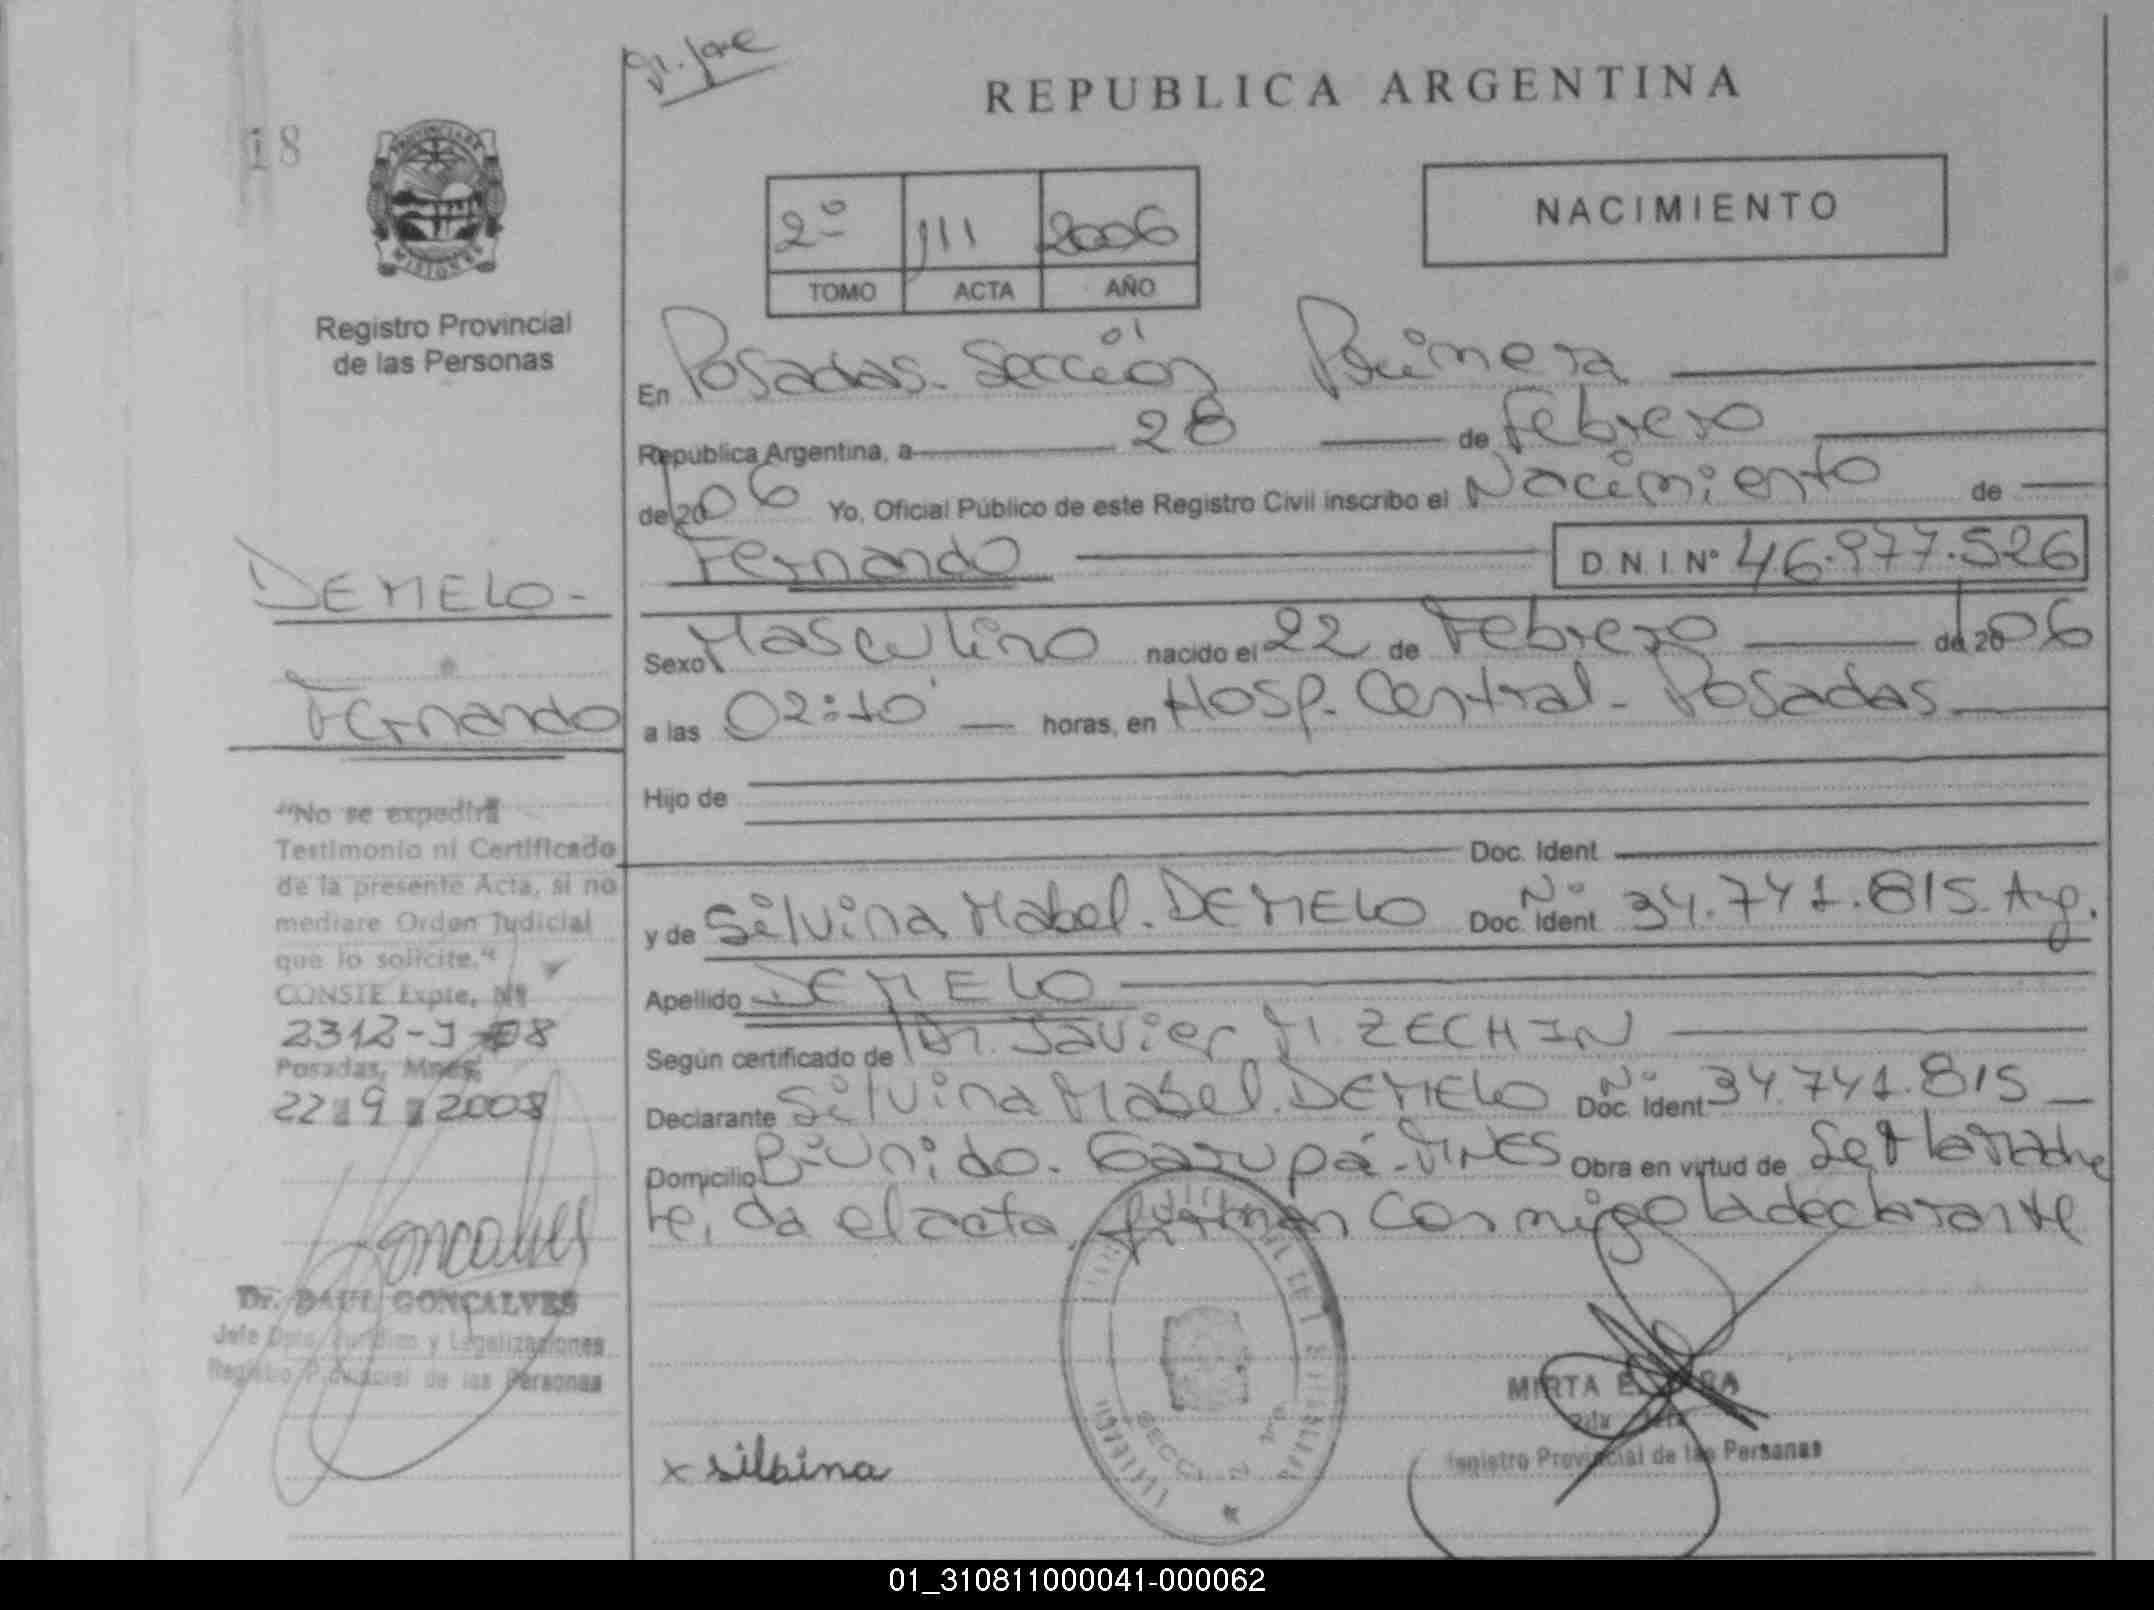 18
REPUBLICA ARGENTINA
NACIMIENTO
2º 111 2006
TOMO ACTA AÑO
Registro Provincial
de las Personas
En Posadas. Sección Primera
República Argentina, a 28 de Febrero
de 2006 Yo, Oficial Público de este Registro Civil inscribo el Nacimiento de
Fernando D.N.I. Nº 46.977.526
Sexo Masculino nacido el 22 de Febrero de 2006
a las 02:10' horas, en Hosp. Central - Posadas
Hijo de
Doc. Ident
y de Silvina Mabel. DEMELO Doc. Ident Nº 34.741.815. Arg.
Apellido DEMELO
Según certificado de Dr. Javier M. ZECHIN
Declarante Silvina Mabel. DEMELO Doc. Ident Nº 34.741.815
Domicilio Bº Unido. Garupá. MNES Obra en virtud de Ser la Madre
el acta, firman conmigo la declarante
x silbina
MIRTA
Registro Provincial de las Personas
DEMELO-
Fernando
"No se expedirá
Testimonio ni Certificado
de la presente Acta, si no
mediare Orden Judicial
que lo solicite."
CONSTE Expte. Nº
2312-J-08
Posadas, Mnes,
22 9 2008
Goncalves
Dr. RAUL GONCALVES
Jefe Dpto. Jurídico y Legalizaciones
Registro Provincial de las Personas
01_310811000041-000062